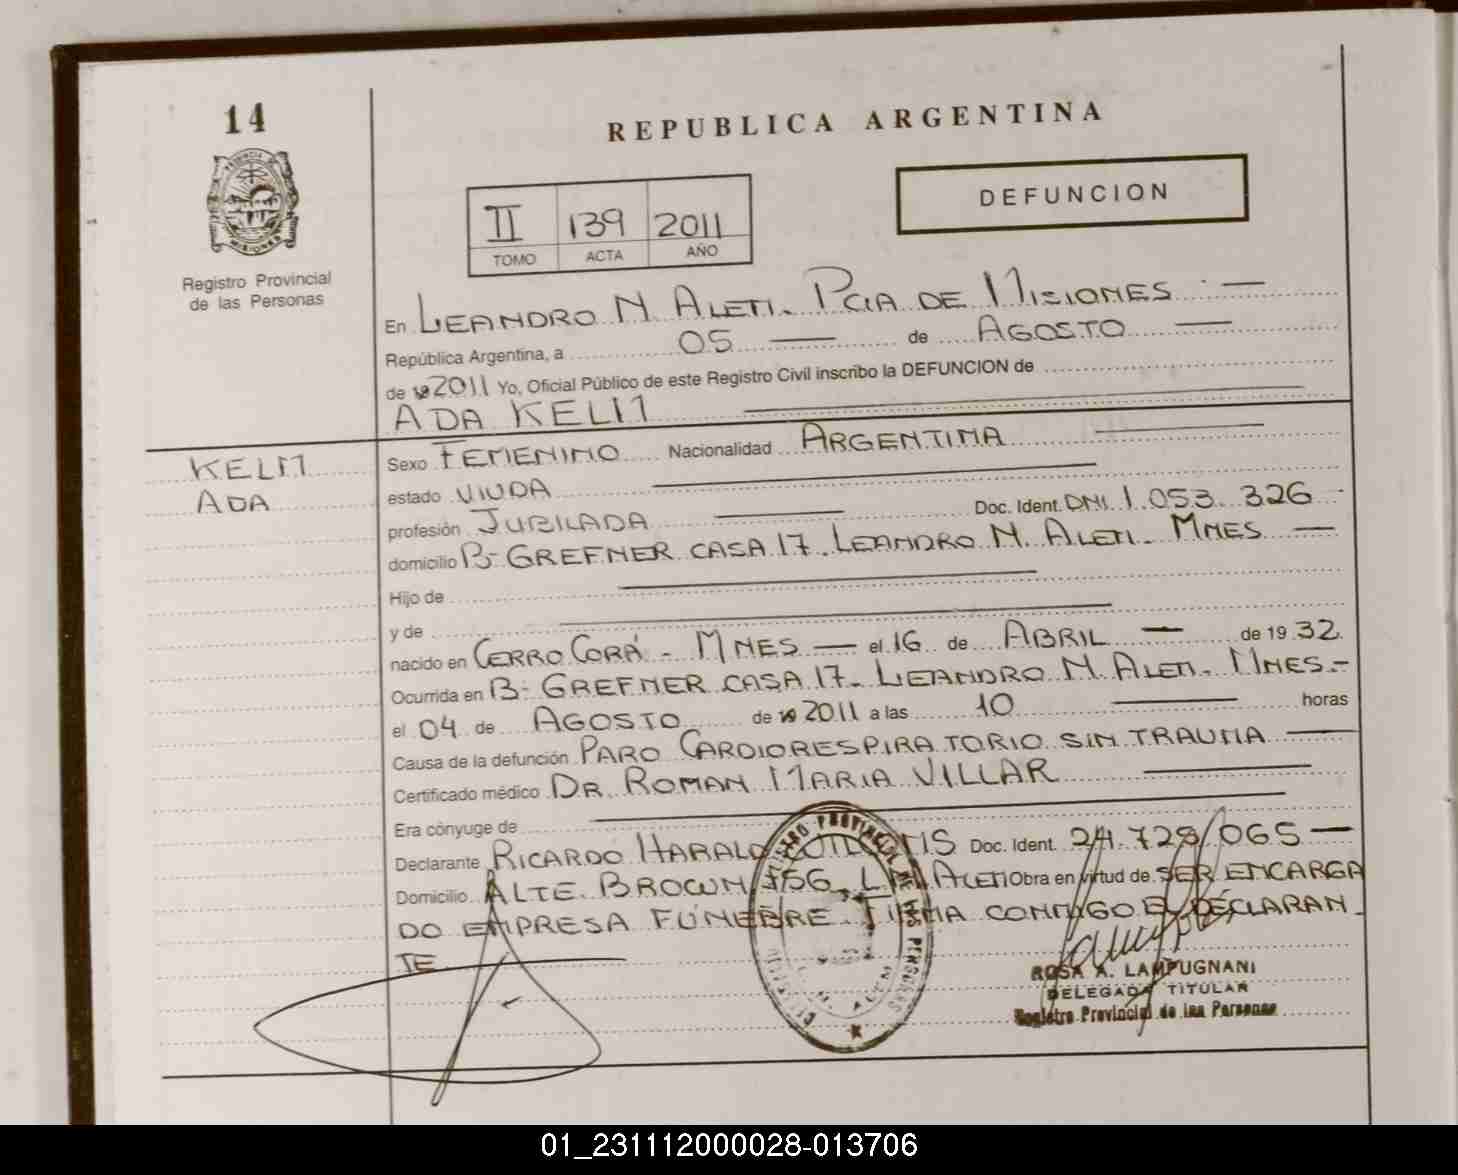 14
REPUBLICA ARGENTINA
DEFUNCION
II 139 2011
TOMO ACTA AÑO
Registro Provincial
de las Personas
En LEANDRO N. ALEM. PCIA DE MISIONES
República Argentina, a 05 de AGOSTO
de 19 2011 Yo, Oficial Público de este Registro Civil inscribo la DEFUNCION de
ADA KELM
KELM
ADA
Sexo FEMENINO Nacionalidad ARGENTINA
estado VIUDA
profesión JUBILADA Doc. Ident. DNI 1.053.326
domicilio Bº GREFNER CASA 17. LEANDRO N. ALEM. MNES
Hijo de
y de
nacido en CERRO CORÁ - MNES el 16 de ABRIL de 19 32.
Ocurrida en Bº GREFNER CASA 17. LEANDRO N. ALEM. MNES.-
el 04 de AGOSTO de 19 2011 a las 10 horas
Causa de la defunción PARO CARDIORESPIRATORIO SIN TRAUMA
Certificado médico DR. ROMAN MARIA VILLAR
Era cónyuge de
Declarante RICARDO HARALD Doc. Ident. 24.728.065
Domicilio ALTE. BROWN 756, L.N. ALEM Obra en virtud de SER ENCARGA
DO EMPRESA FÚNEBRE. FIRMA CONMIGO EL DECLARAN
TE
REGISTRO PROVINCIAL DE LAS PERSONAS
ROSA A. LAMPUGNANI
DELEGADA TITULAR
Registro Provincial de las Personas
01_231112000028-013706